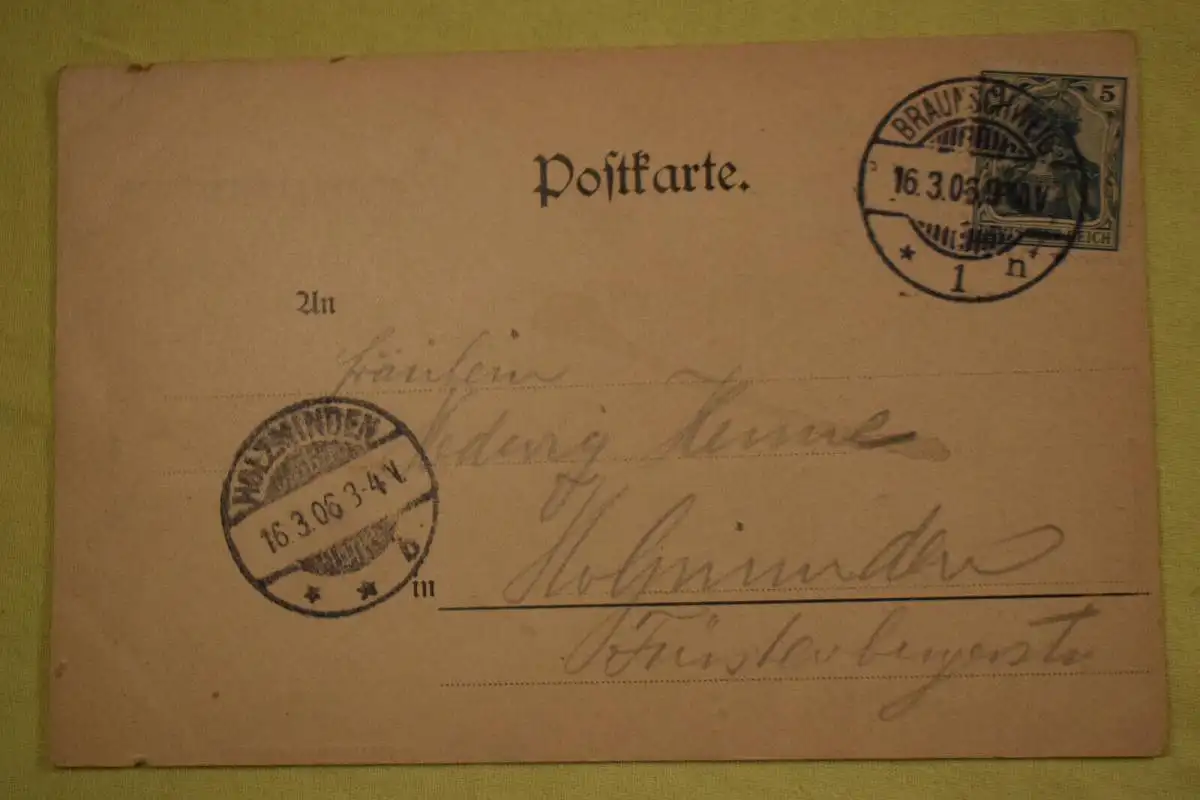 Postkarte.
5
BRAUNSCHWEIG
16.3.06.9-10V.
* 1 n
REICH
An
Fräulein
Hedwig Henne
HOLZMINDEN
16.3.06 3-4 V.
* * b
in
Holzminden
Fürstenbergerstr